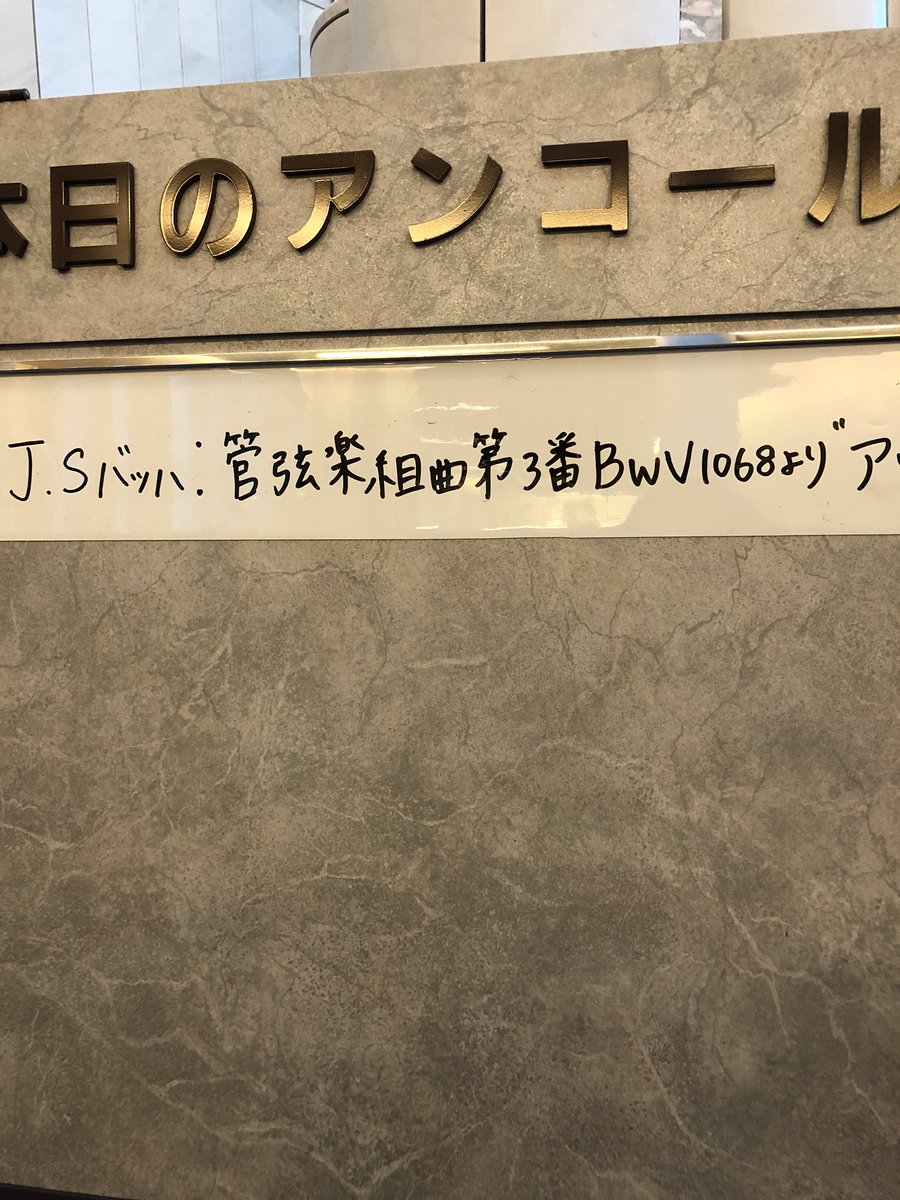 本日のアンコール
J.Sバッハ:管弦楽組曲第3番BWV1068より"ア